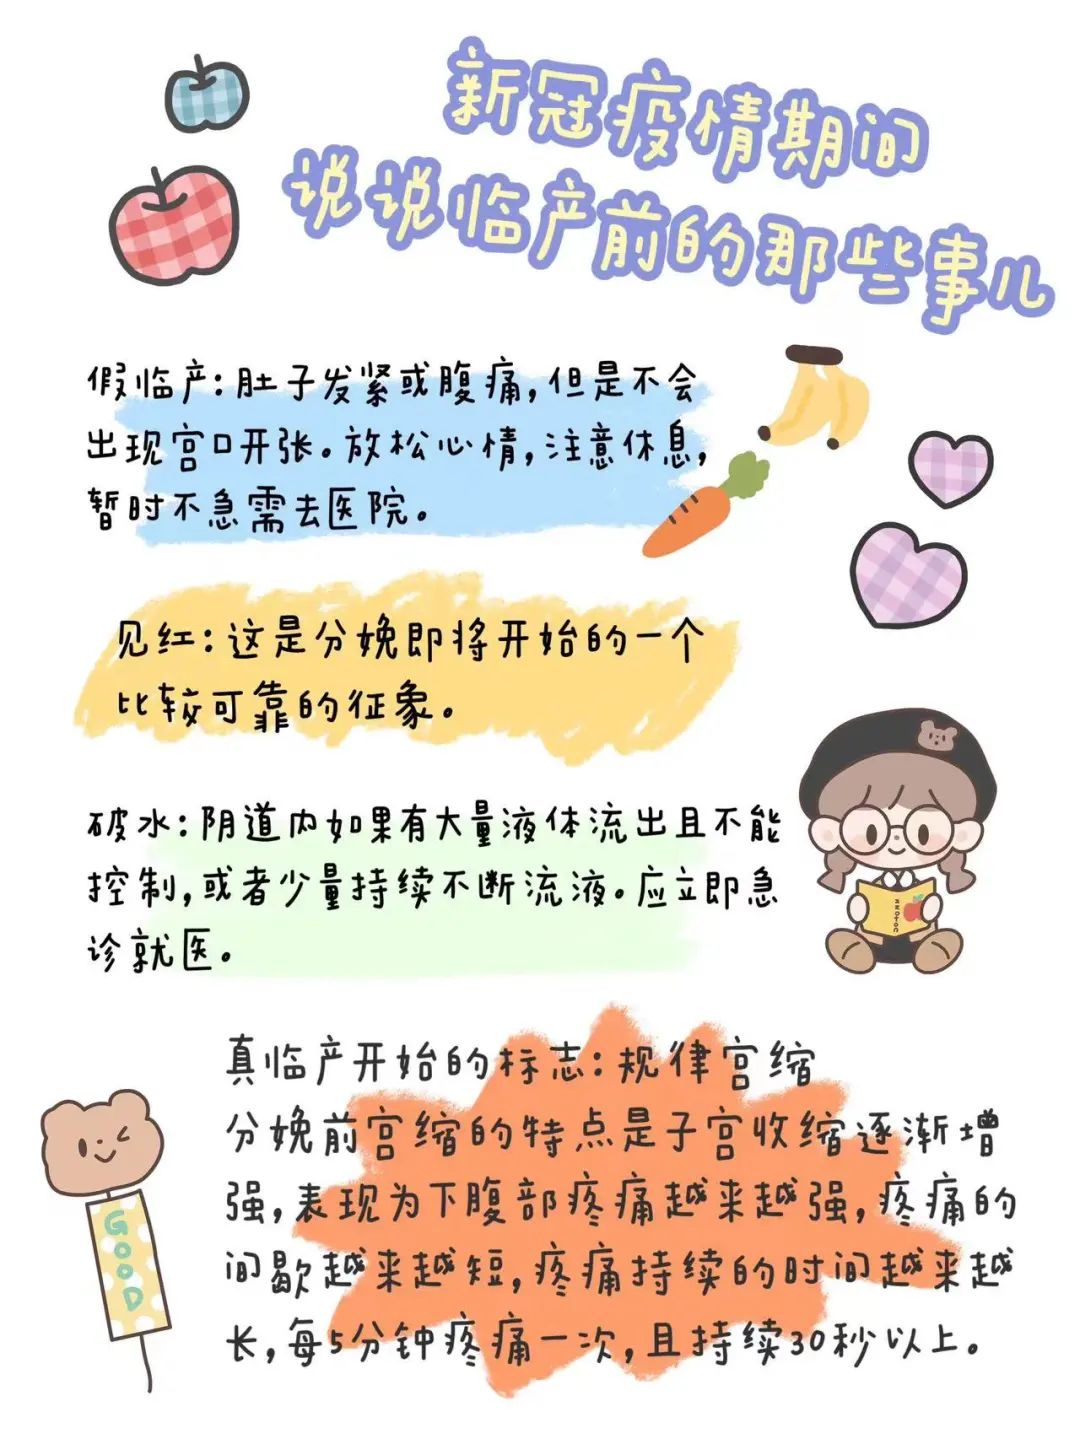 新冠疫情期间
说说临产前的那些事儿
假临产:肚子发紧或腹痛,但是不会
出现宫口开张。放松心情,注意休息,
暂时不急需去医院。
见红:这是分娩即将开始的一个
比较可靠的征象。
破水:阴道内如果有大量液体流出且不能
控制,或者少量持续不断流液。应立即急
诊就医。
真临产开始的标志:规律宫缩
分娩前宫缩的特点是子宫收缩逐渐增
强,表现为下腹部疼痛越来越强,疼痛的
间歇越来越短,疼痛持续的时间越来越
长,每5分钟疼痛一次,且持续30秒以上。
GOOD